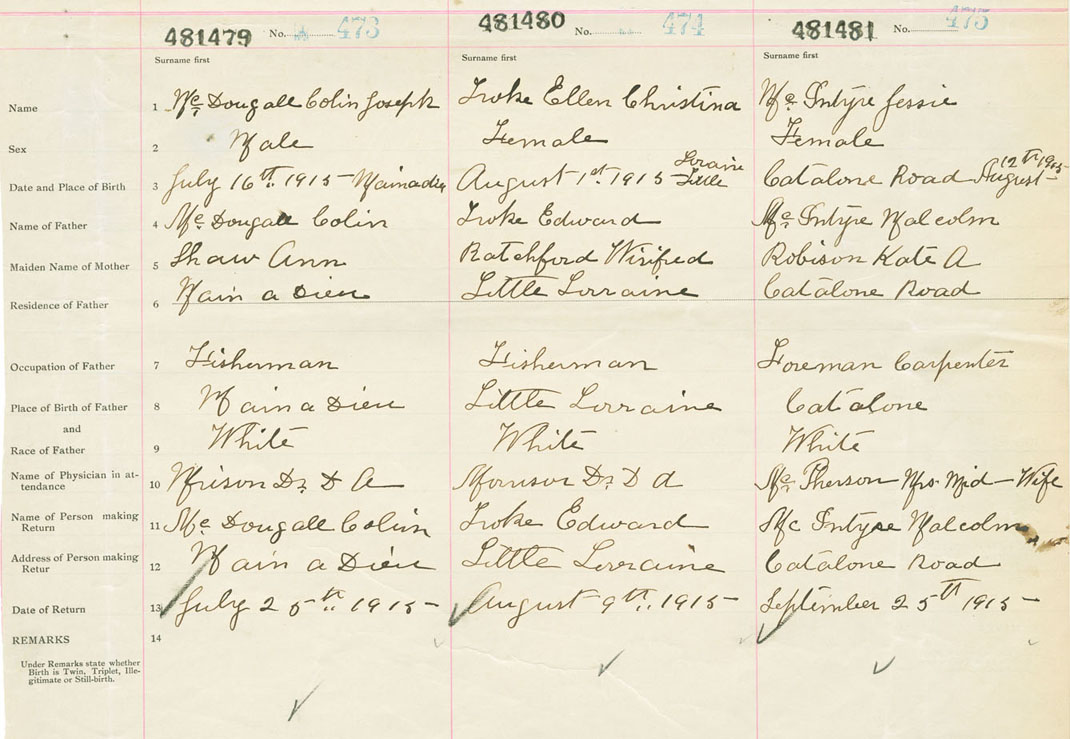 481479 No. 473 481480 No. 474 481481 No. 475
Surname first Surname first Surname first
Name 1 Mc Dougall Colin Joseph Troke Ellen Christina Mc Intyre Jessie
Sex 2 Male Female Female
Date and Place of Birth 3 July 16th 1915 - Mainadieu August 1st 1915 - Loraine Little Catalone Road August 12th 1915-
Name of Father 4 Mc Dougall Colin Troke Edward Mc Intyre Malcolm
Maiden Name of Mother 5 Shaw Ann Ratchford Wirifred Robison Kate A
Residence of Father 6 Main a Dieu Little Lorraine Catalone Road
Occupation of Father 7 Fisherman Fisherman Foreman Carpenter
Place of Birth of Father 8 Main a Dieu Little Lorraine Catalone
and
Race of Father 9 White White White
Name of Physician in at-
tendance 10 Dr. D A Dr. D A Mc Pherson Mrs. Mid-Wife
Name of Person making
Return 11 Mc Dougall Colin Troke Edward Mc Intyre Malcolm
Address of Person making
Retur 12 Main a Dieu Little Lorraine Catalone Road
Date of Return 13 July 25th 1915- August 9th. 1915- September 25th 1915-
REMARKS 14
Under Remarks state whether
Birth is Twin, Triplet, Ille-
gitimate or Still-birth.